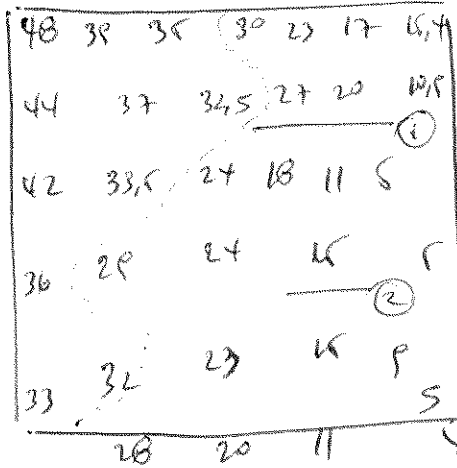 48 39 35 30 23 17 15,4
44 37 32,5 27 20 10,5
1
42 33,5 24 18 11 5
36 29 24 15 5
2
33 32 23 15 9 5
28 20 11